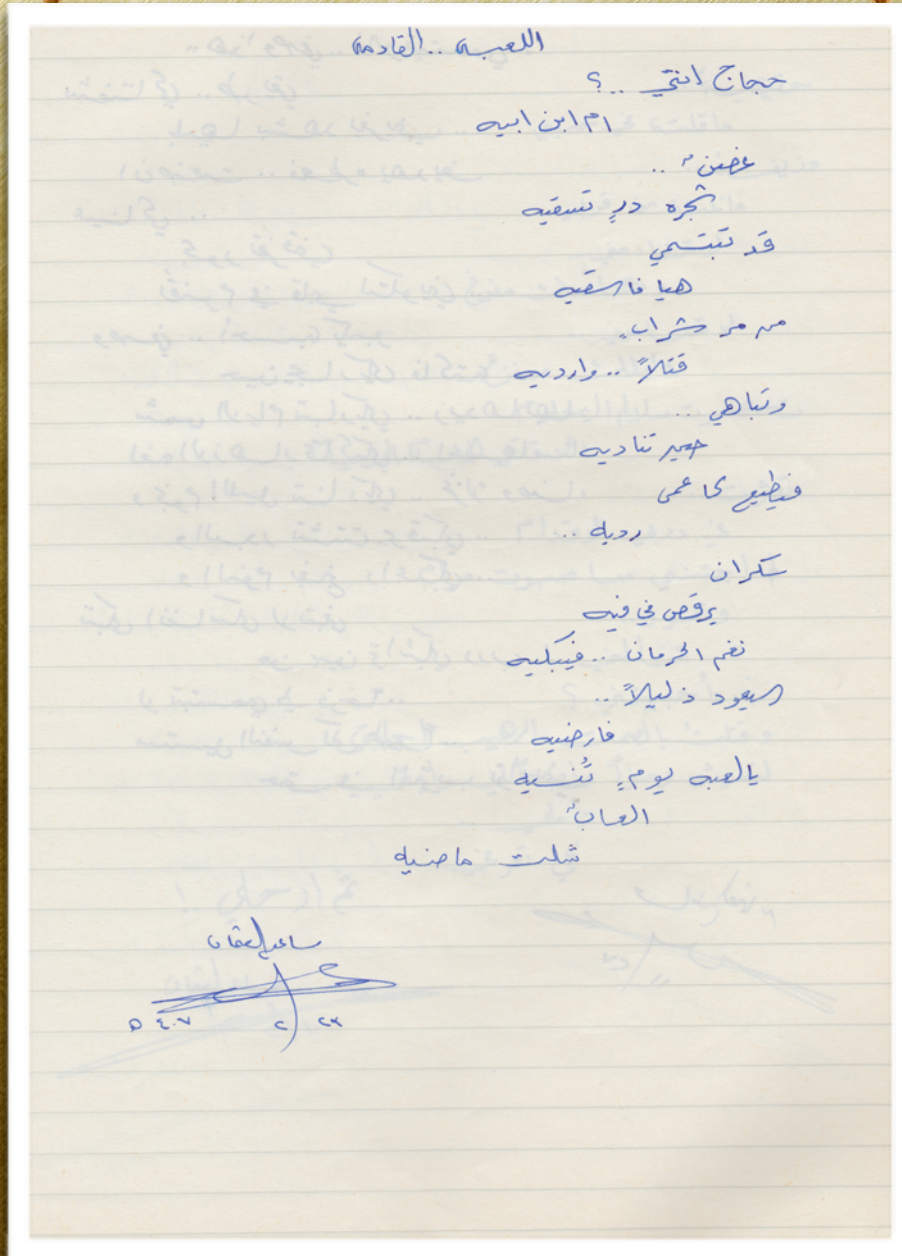 اللعبه .. القادمه
حجاج انتي .. ؟
ام ابن ابيه
غصنٌ ..
شجره درٍ تسقيه
قد تبتسمي
هيا فاسقيه
من مر شرابٍ
قتلاً .. وارديه
وتباهي ..
حين تناديه
فيطيع كاعمى
رديه ..
سكران
يرقص في فيه
نغم الحرمان .. فيبكيه
سيعود ذليلاً ..
فارضيه
يالعبه يومٍ تُنسيه
العابٌ
شلت ماضيه
ساعد
٢٣ / ٢ / ١٤٠٧ ه